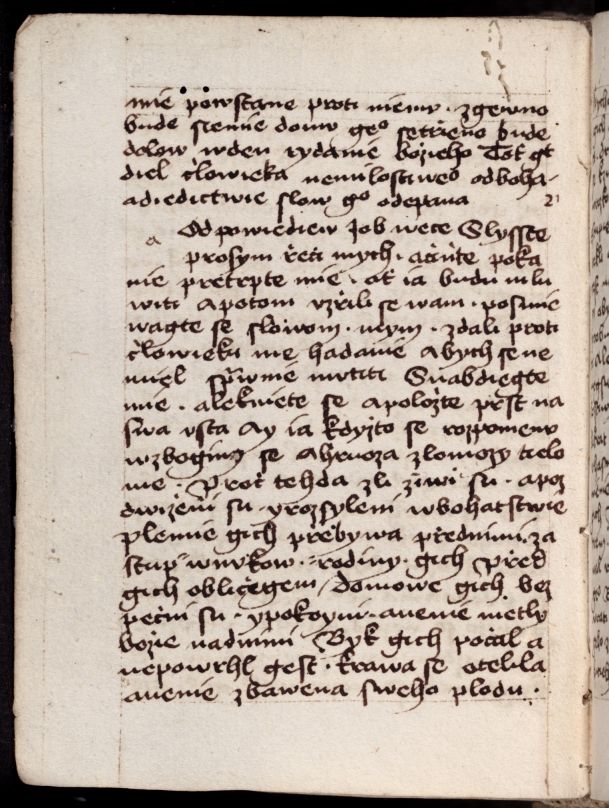 mie powstane proti niemu · zgewno
bude siemie domu geᵒ setrzeno bude
dolow wden rydanie bozieho Tot gt
diel czlowieka nemilostiweᵒ odboha-
adiedictwie slow gᵒ odepana 21
a Odpowiediew Job wece Slysste
prosym rzeci mych · aczinte poka
nie pretrpte mie · at ia budu mlu
witi apotom uzrzili se wam · posmie
wagte se slowom · mym · zdali proti
czlowieku me hadanie abych sene
miel sprwnie mutiti Snabdiegte
mie · alekniete se apolozte prst na
swa usta Ay ia kdyzto se rozpomenu
wzbogim se ahruoza zlomozy tielo
me · Procz tehda zli ziwi su · apoz
dwizeni su yrozsyleni wbohatstwie
plemie gich przebywa przednimi · za
stup wnukow · rodiny · gich przed
gich obliczegem / domowe gich bez
peczni su · ypokoyni · anenie metly
bozie nadnimi Byk gich poczal a
nepowrhl gest · krawa se otelila
anenie zbawena sweho plodu ·